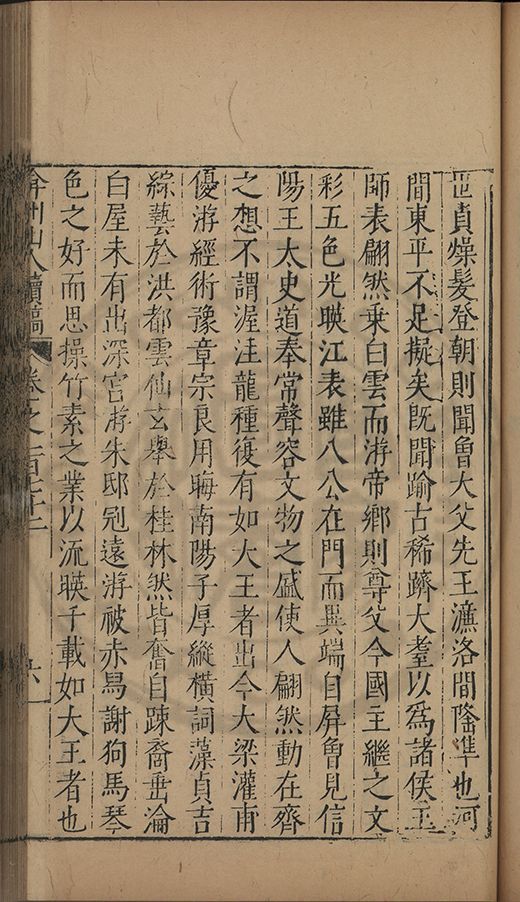 世貞燥髮登朝則聞魯大父先王濂洛間隆準也河
間東平不足擬矣既聞踰古稀躋大耋以為諸侯王
師表翩然乗白雲而游帝鄉則尊父今國主繼之文
彩五色光暎江表雖八公在門而異端自屏魯見信
陽王太史道奉常聲容文物之盛使人翩然動在齊
之想不謂渥洼龍種復有如大王者出今大梁灌甫
優游經術豫章宗良用晦南陽子厚縱橫詞藻貞吉
綜藝於洪都雲仙玄舉於桂林然皆奮自踈裔垂淪
白屋未有出深宮游朱邸冠遠游被赤舄謝狗馬琴
色之好而思操竹素之業以流暎千載如大王者也
弇州山人續稿 卷之一百七十二 六